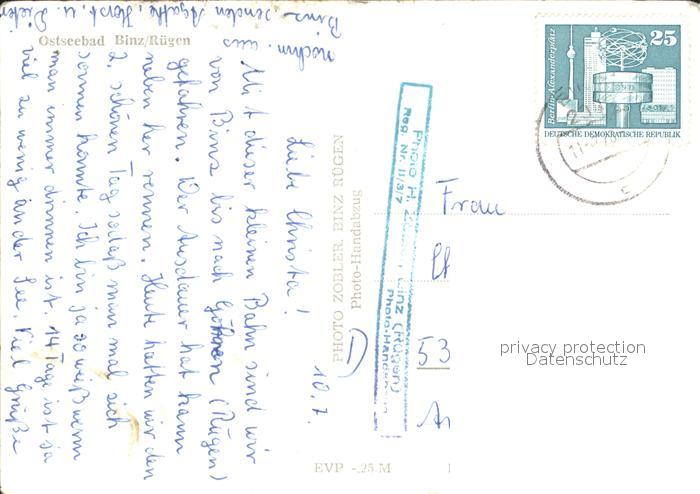 Ostseebad Binz/Rügen
10.7.
Liebe Christa!
Mit dieser kleinen Bahn sind wir
von Binz bis nach Göhren (Rügen)
gefahren. Wer Ausdauer hat kann
neben her rennen. Heute hatten wir den
2. schönen Tag sodaß man mal sich
sonnen konnte. Ich bin ja so weiß wenn
man immer drinnen ist. 14 Tage ist ja
viel zu wenig an der See. Viel Grüße
nochm. aus
Binz senden Agathe, Horst, u. Dieter
PHOTO ZOBLER, BINZ RÜGEN
Photo-Handabzug
Photo H. Binz (Rügen)
Reg. Nr. II/3/7
Photo-Handabzug
EVP -,25 M
25
Berlin-Alexanderplatz
DEUTSCHE DEMOKRATISCHE REPUBLIK
Frau
53
privacy protection
Datenschutz